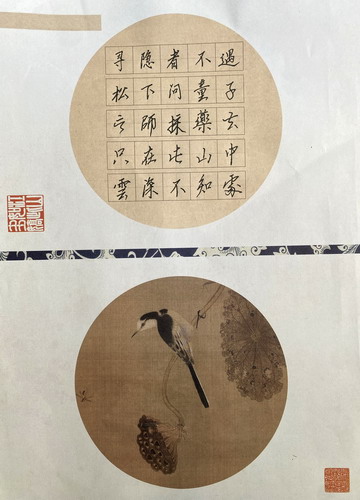 寻隐者不遇
松下问童子
言師採藥去
只在此山中
雲深不知處